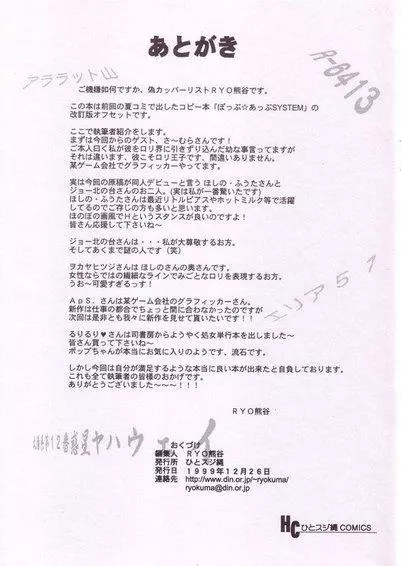 あとがき
アララット山
R-6413
ご機嫌如何ですか、偽カッパーリストRYO熊谷です。
この本は前回の夏コミで出したコピー本「ぽっぷ☆あっぷSYSTEM」の
改訂版オフセットです。
ここで執筆者紹介をします。
まずは今回からのゲスト、さ〜むらさんです!
ご本人曰く私が彼をロリ界に引きずり込んだ幼な事言ってますが
それは違います、彼こそロリ王子です、間違いありません。
某ゲーム会社でグラフィッカーやってます。
実は今回の原稿が同人デビューと言う ほしの・ふうたさんと
ジョー北の台さんのお二人。(実は私が一番驚いたです)
ほしの・ふうたさんは最近リトルピアスやホットミルク等で活躍
してるのでご存じの方も多いと思います。
ほのぼの画風でHというスタンスが良いのですよ!
皆さん応援して下さいね〜
ジョー北の台さんは・・・私が大尊敬するお方。
そしてあくまで謎の人です(笑)
ヲカヤヒツジさんは ほしのさんの奥さんです。
女性ならではの繊細なラインでみごとなロリを表現するお方。
うお〜可愛すぎるっす!
エリア51
ApS. さんは某ゲーム会社のグラフィッカーさん。
新作は仕事の都合でちょっと間に合わなかったのですが
次回は是非とも我々に新作を見せて貰いたいです!!
るりるり♥さんは司書房からようやく処女単行本を出しました〜
皆さん買って下さいね〜
ポップちゃんが本当にお気に入りのようです、流石です。
しかし今回は自分が満足するような本当に良い本が出来たと自負しております。
これも全て執筆者の皆様のおかげです。
ありがとうございました〜〜〜!!!
RYO熊谷
12番惑星ヤハウェイ
おくづけ
編集人 RYO熊谷
発行所 ひとスジ縄
発行日 1999年12月26日
連絡先 http://www.din.or.jp/~ryokuma/
ryokuma@din.or.jp
HC ひとスジ縄 COMICS